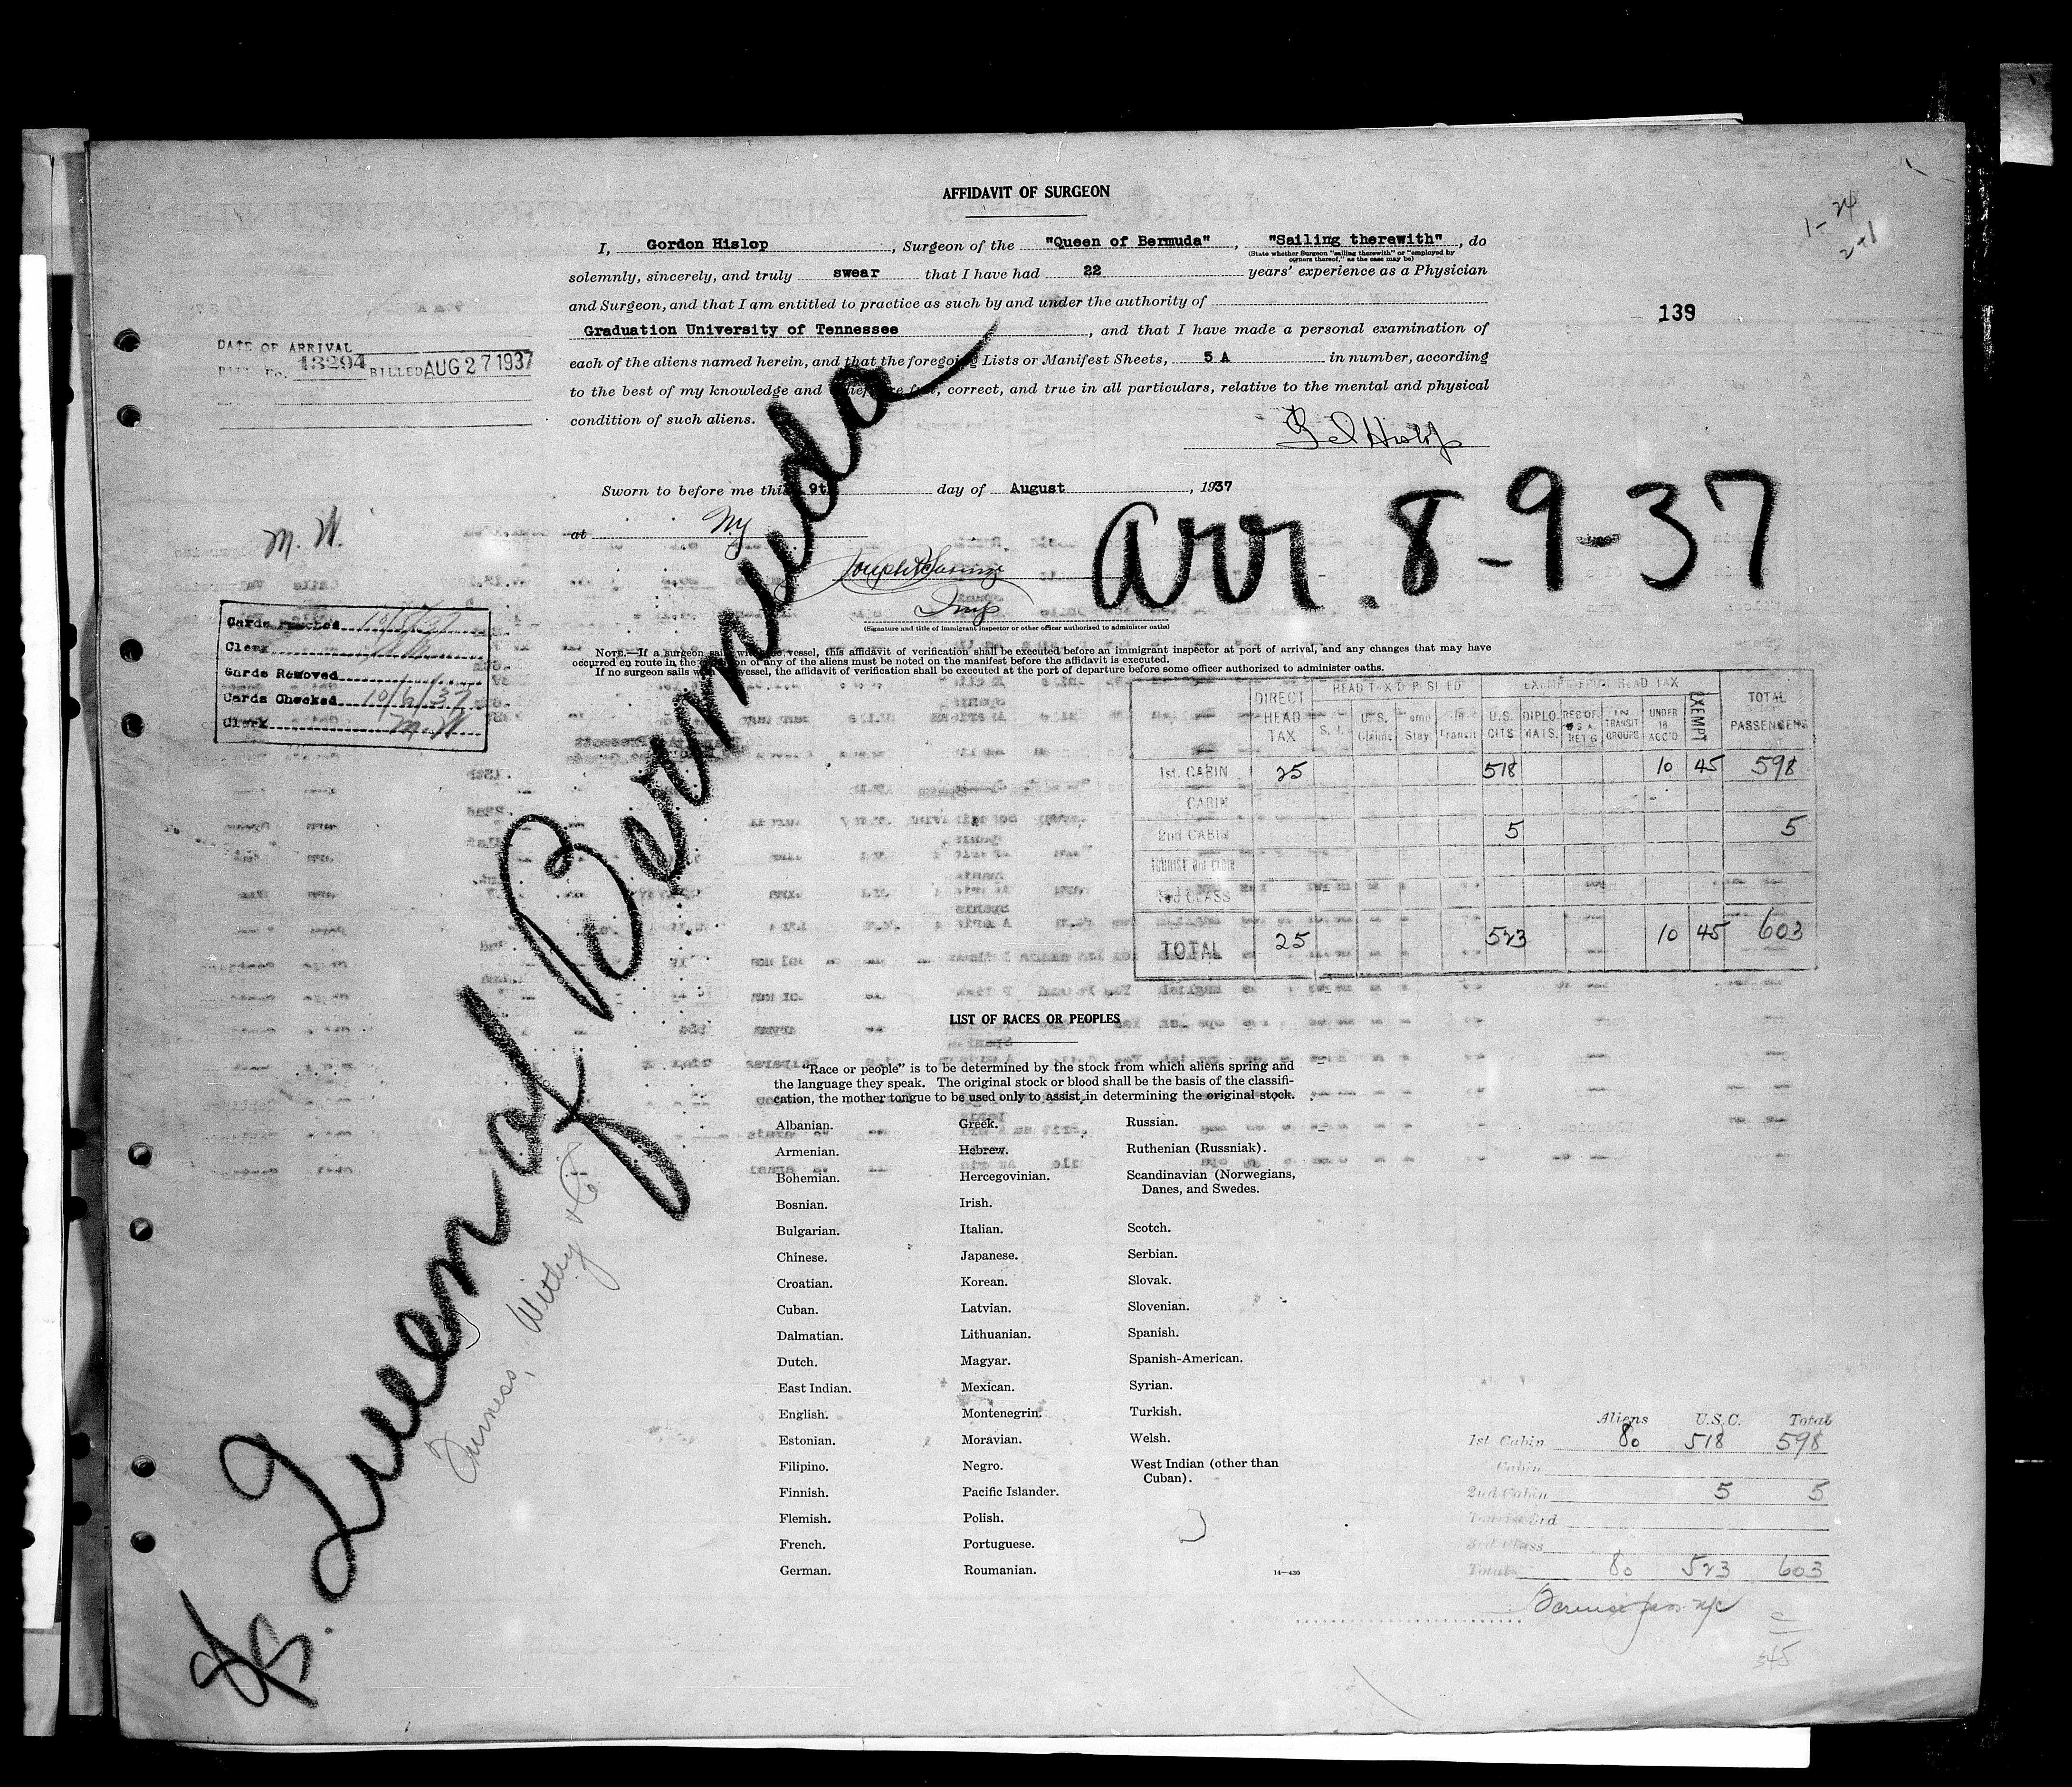 AFFIDAVIT OF SURGEON
I, Gordon Hislop, Surgeon of the "Queen of Bermuda", "Sailing therewith", do
(State whether Surgeon "sailing therewith" or "employed by
owners thereof," as the case may be)
solemnly, sincerely, and truly swear that I have had 22 years' experience as a Physician
and Surgeon, and that I am entitled to practice as such by and under the authority of
Graduation University of Tennessee, and that I have made a personal examination of
each of the aliens named herein, and that the foregoing Lists or Manifest Sheets, 5 A in number, according
to the best of my knowledge and belief, are full, correct, and true in all particulars, relative to the mental and physical
condition of such aliens.
1-24
139
DATE OF ARRIVAL
13294 BILLED AUG 27 1937
Sworn to before me this 9th day of August, 1937
at NY
Insp
(Signature and title of immigrant inspector or other officer authorized to administer oaths)
Arr. 8-9-37
M. W.
Cards Punched 10/5/37
Clerk
Cards Removed
Cards Checked 10/6/37
Clerk M. W.
NOTE.—If a surgeon sails with the vessel, this affidavit of verification shall be executed before an immigrant inspector at port of arrival, and any changes that may have
occurred en route in the condition of any of the aliens must be noted on the manifest before the affidavit is executed.
If no surgeon sails with the vessel, the affidavit of verification shall be executed at the port of departure before some officer authorized to administer oaths.
DIRECT HEAD TAX HEAD TAX DEPOSITED EXEMPT FROM HEAD TAX TOTAL PASSENGERS
S. I. U.S. Claims Temp Stay In Transit U.S. CITS DIPLO-MATS. RES OF U.S.A. RET'G IN TRANSIT GROUPS UNDER 16 ACC'D EXEMPT
1st. CABIN 25 518 10 45 598
CABIN
2nd CABIN 5 5
TOURIST 3rd CABIN
3rd CLASS
TOTAL 25 523 10 45 603
SS. Queen of Bermuda
Furness, Withy & Co
LIST OF RACES OR PEOPLES
"Race or people" is to be determined by the stock from which aliens spring and
the language they speak. The original stock or blood shall be the basis of the classifi-
cation, the mother tongue to be used only to assist in determining the original stock.
Albanian. Greek. Russian.
Armenian. Hebrew. Ruthenian (Russniak).
Bohemian. Hercegovinian. Scandinavian (Norwegians,
Danes, and Swedes.
Bosnian. Irish.
Bulgarian. Italian. Scotch.
Chinese. Japanese. Serbian.
Croatian. Korean. Slovak.
Cuban. Latvian. Slovenian.
Dalmatian. Lithuanian. Spanish.
Dutch. Magyar. Spanish-American.
East Indian. Mexican. Syrian.
English. Montenegrin. Turkish.
Estonian. Moravian. Welsh.
Filipino. Negro. West Indian (other than
Cuban).
Finnish. Pacific Islander.
Flemish. Polish.
French. Portuguese.
German. Roumanian.
14—430
Aliens U.S.C. Total
1st. Cabin 80 518 598
Cabin
2nd Cabin 5 5
Tourist 3rd
3rd Class
Total 80 523 603
345